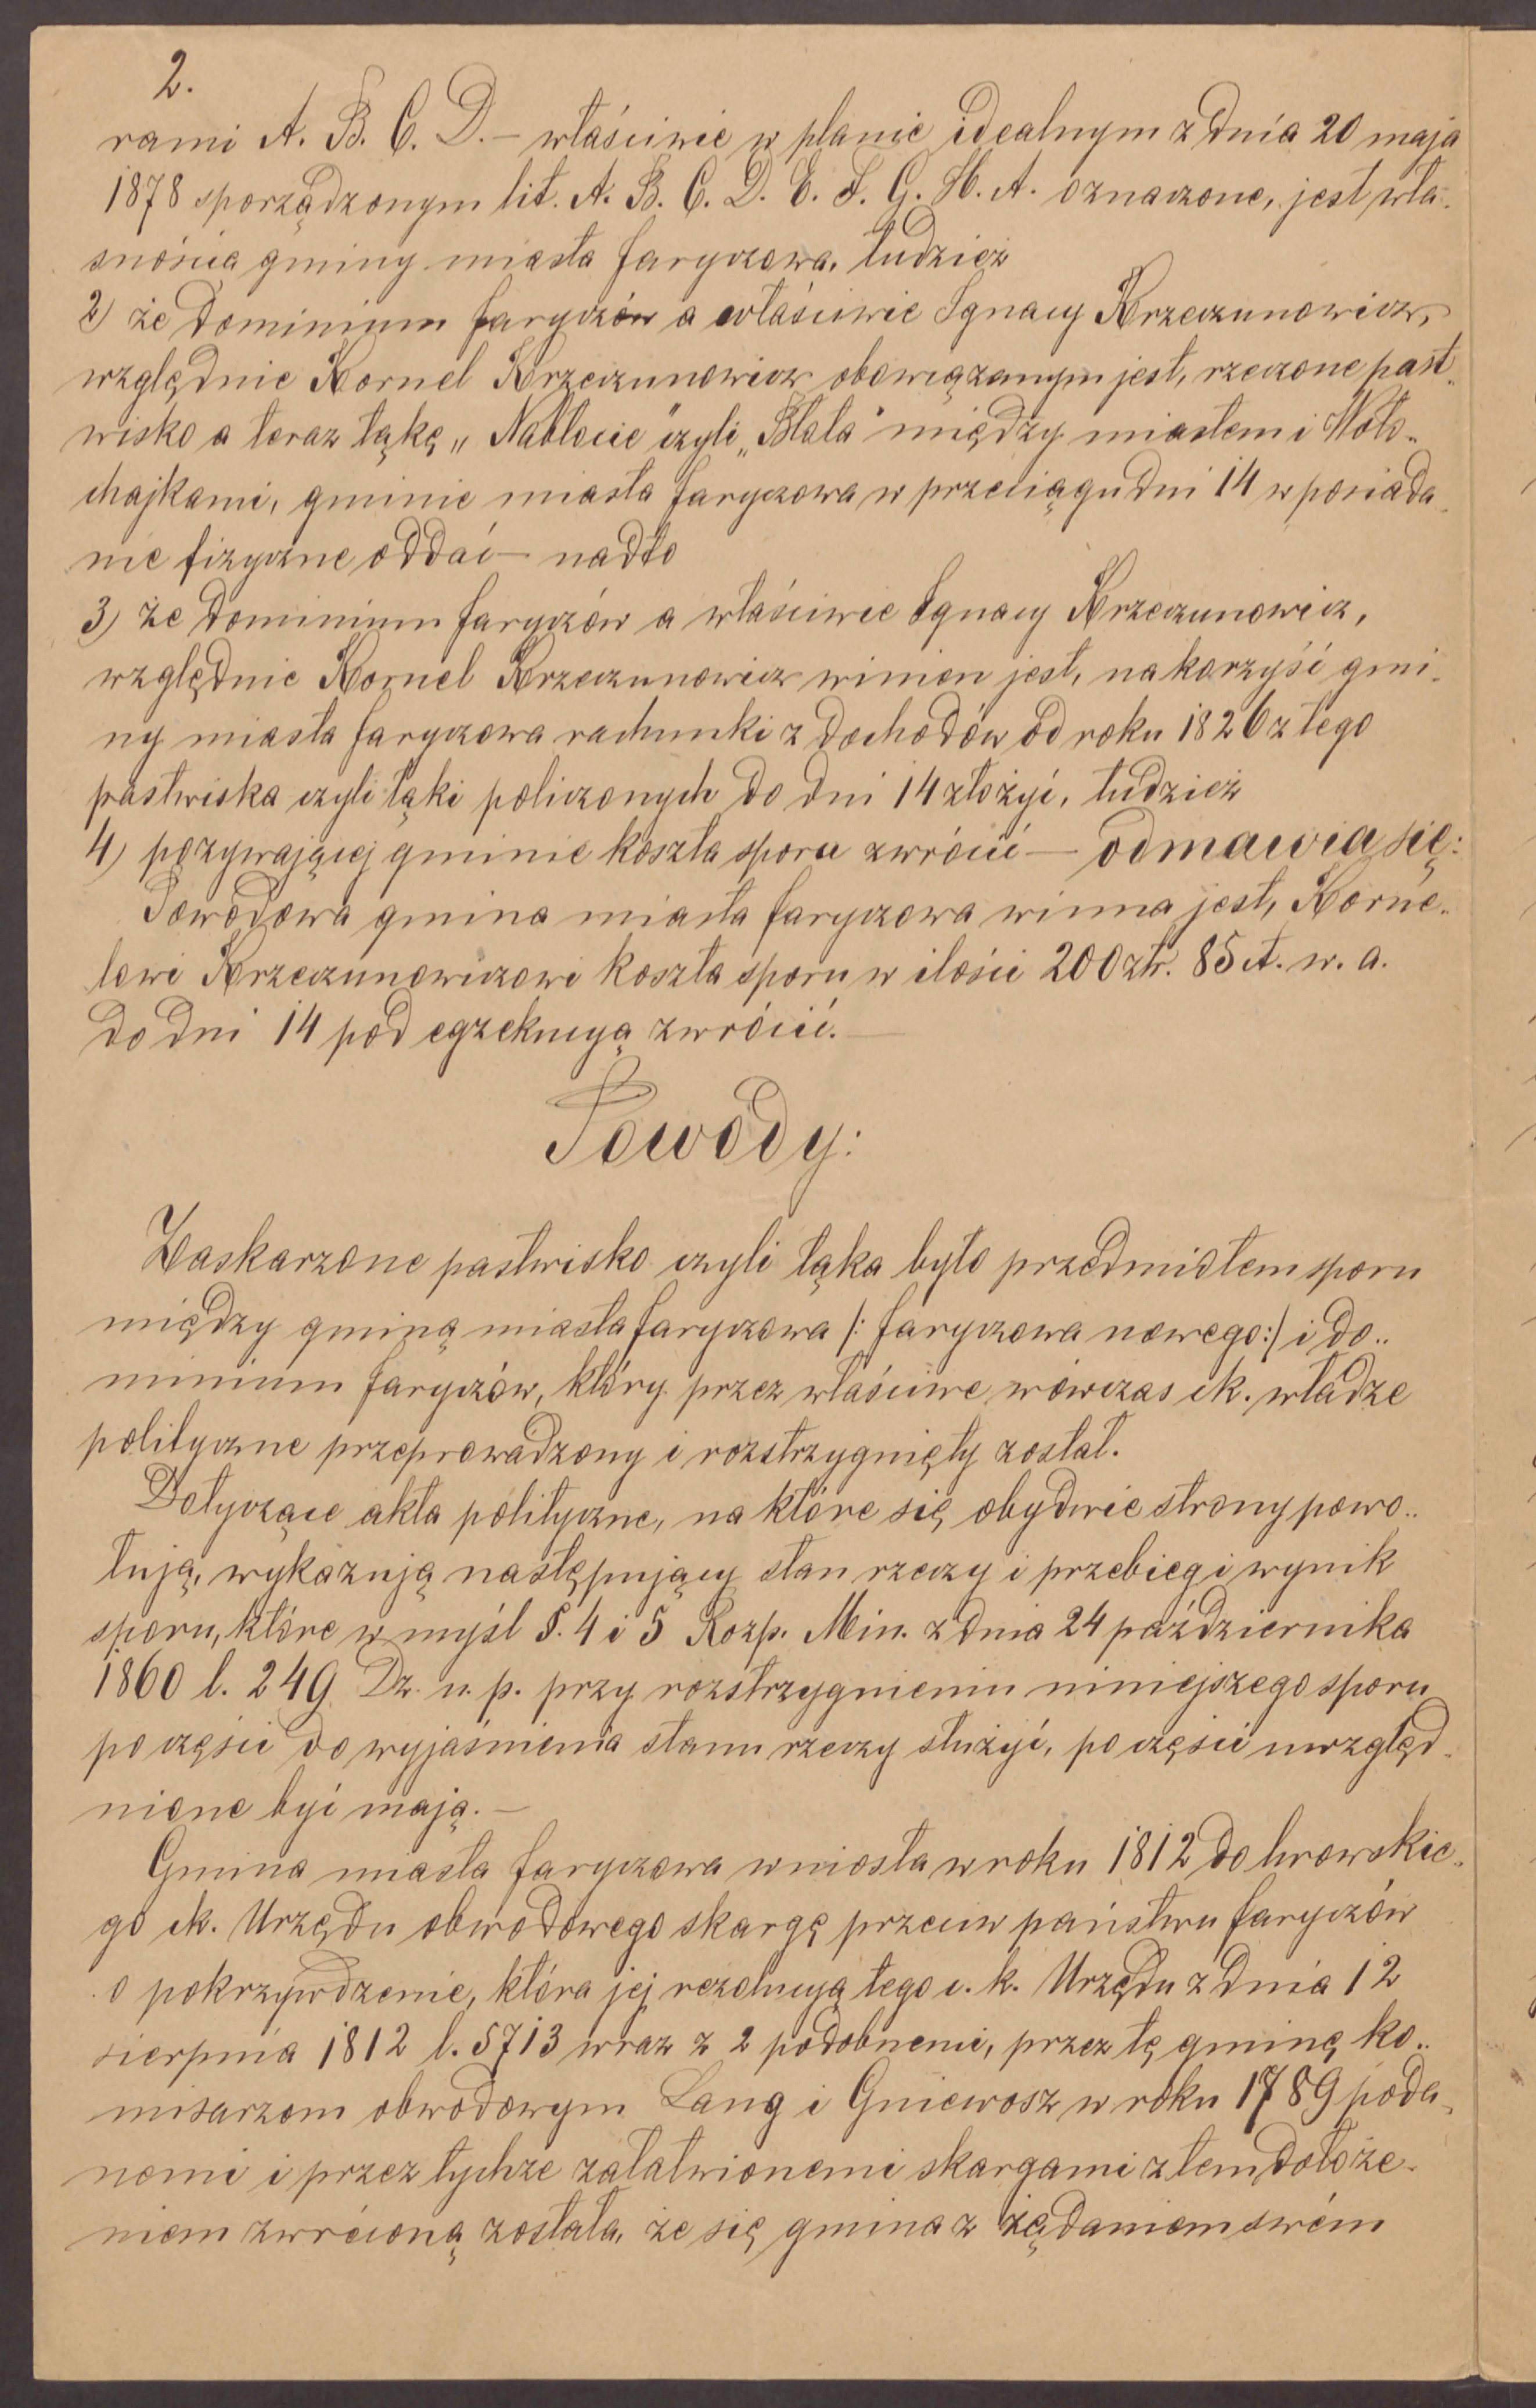 2.
rami A. B. C. D. – właściwie w planie idealnym z dnia 20 maja
1878 sporządzonym lit. A. B. C. D. E. F. G. H. A. oznaczone, jest wła-
snością gminy miasta Jaryczowa, tudzież
2) że Dominium Jaryczów a właściwie Ignacy Krzeczunowicz,
względnie Kornel Krzeczunowicz obowiązanym jest, rzeczone past-
wisko a teraz łąkę „Nabłocie" czyli „Błata" między miastem i Woło-
chajkami, gminie miasta Jaryczowa w przeciągu dni 14 w posiada-
nie fizyczne oddać – nadto
3) że Dominium Jaryczów a właściwie Ignacy Krzeczunowicz,
względnie Kornel Krzeczunowicz winien jest, na korzyść gmi-
ny miasta Jaryczowa rachunki z dochodów od roku 1826 z tego
pastwiska czyli łąki policzonych do dni 14 złożyć, tudzież
4) pozywającej gminie koszta sporu zwrócić – odmawia się:
Powodowa gmina miasta Jaryczowa winna jest, Korne-
lowi Krzeczunowiczowi koszta sporu w ilości 200 złr. 85 ct. w. a.
do dni 14 pod egzekucyą zwrócić. –
Powody:
Zaskarzone pastwisko czyli łąka było przedmiotem sporu
między gminą miasta Jaryczowa /: Jaryczowa nowego :/ i do-
minium Jaryczów, który przez właściwe wówczas ck. władze
polityczne przeprowadzony i rozstrzygnięty został.
Dotyczące akta polityczne, na które się obydwie strony powo-
łują, wykazują następujący stan rzeczy i przebieg i wynik
sporu, które w myśl §. 4 i 5 Rozp. Min. z dnia 24 października
1860 l. 249 Dz. u. p. przy rozstrzygnieniu niniejszego sporu
po części do wyjaśnienia stanu rzeczy służyć, po części uwzględ-
nione być mają. –
Gmina miasta Jaryczowa wniosła w roku 1812 do lwowskie-
go ck. Urzędu obwodowego skargę przeciw państwu Jaryczów
o pokrzywdzenie, która jej rezolucyą tego c. k. Urzędu z dnia 12
sierpnia 1812 l. 5713 wraz z 2 podobnemi, przez tę gminę ko-
misarzom obwodowym Lang i Gniewosz w roku 1789 poda-
nemi i przez tychże załatwionemi skargami z tem dołoże-
niem zwróconą została, że się gmina z żądaniem swém